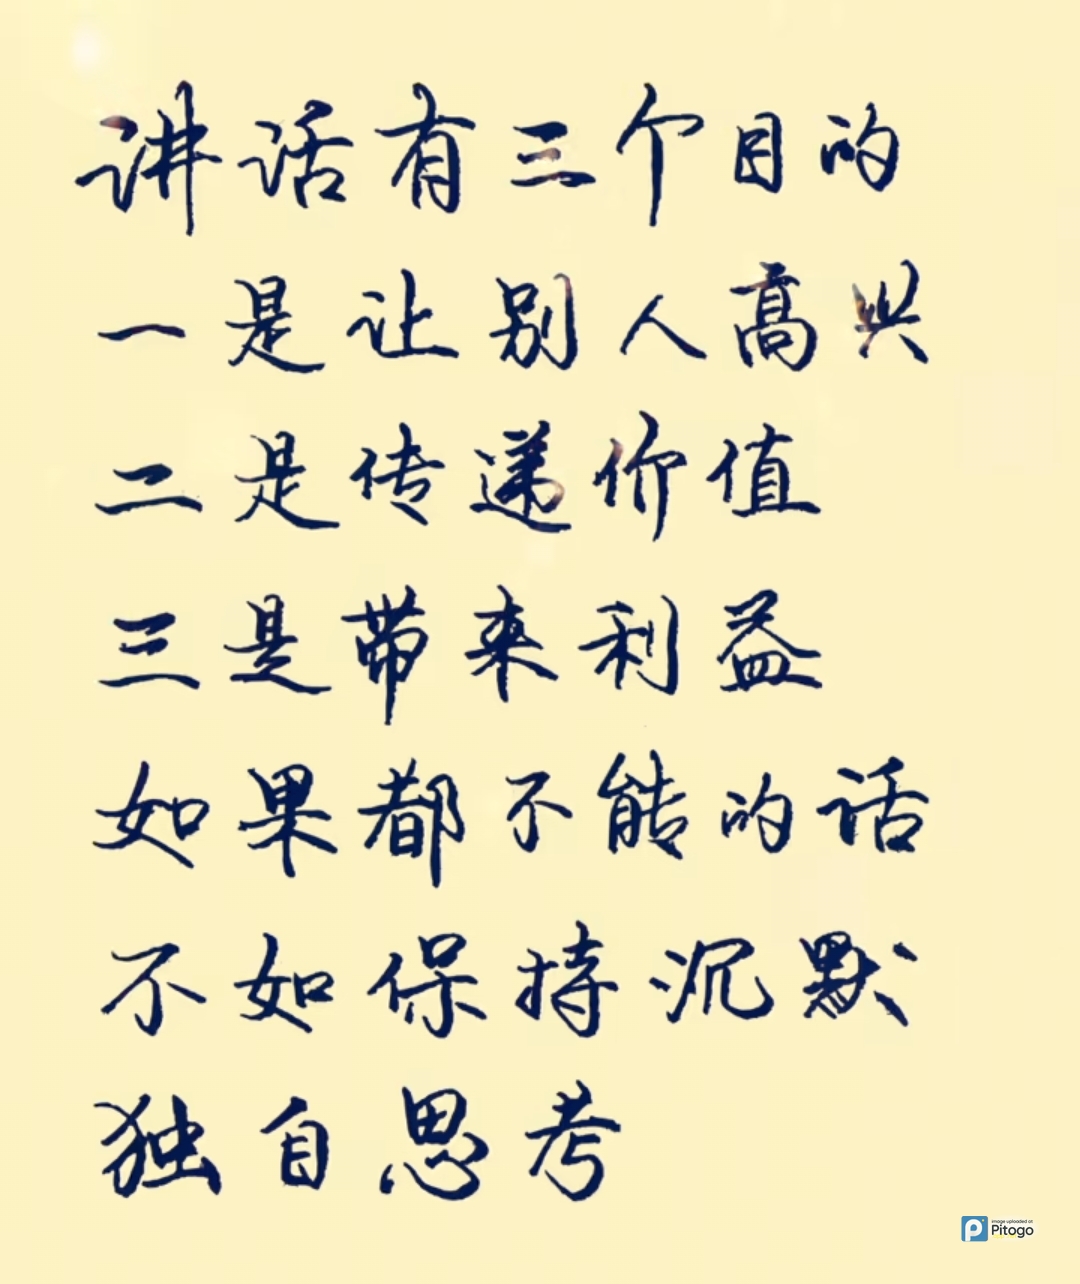 讲话有三个目的
一是让别人高兴
二是传递价值
三是带来利益
如果都不能的话
不如保持沉默
独自思考
image uploaded at
Pitogo